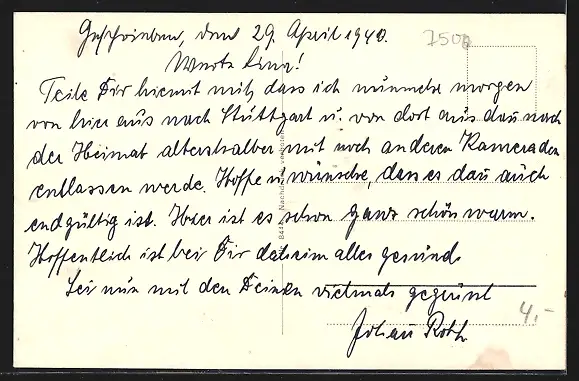 Geschrieben, den 29. April 1940.
7500
Werte Lina!
Teile Dir hiermit mit, dass ich nunmehr morgen
von hier aus nach Stuttgart u. von dort aus dan nach
der Heimat altershalber mit noch anderen Kameraden
entlassen werde. Hoffe u. wünsche, dass es dan auch
endgültig ist. Hier ist es schon ganz schön warm.
Hoffentlich ist bei Dir daheim alles gesund.
Sei nun mit den Deinen vielmals gegrüßt
Johan Roth
4,-